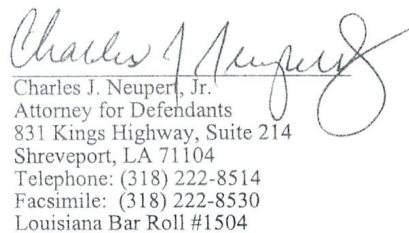 Charles J Neupert Jr
Charles J. Neupert, Jr.
Attorney for Defendants
831 Kings Highway, Suite 214
Shreveport, LA 71104
Telephone: (318) 222-8514
Facsimile: (318) 222-8530
Louisiana Bar Roll #1504